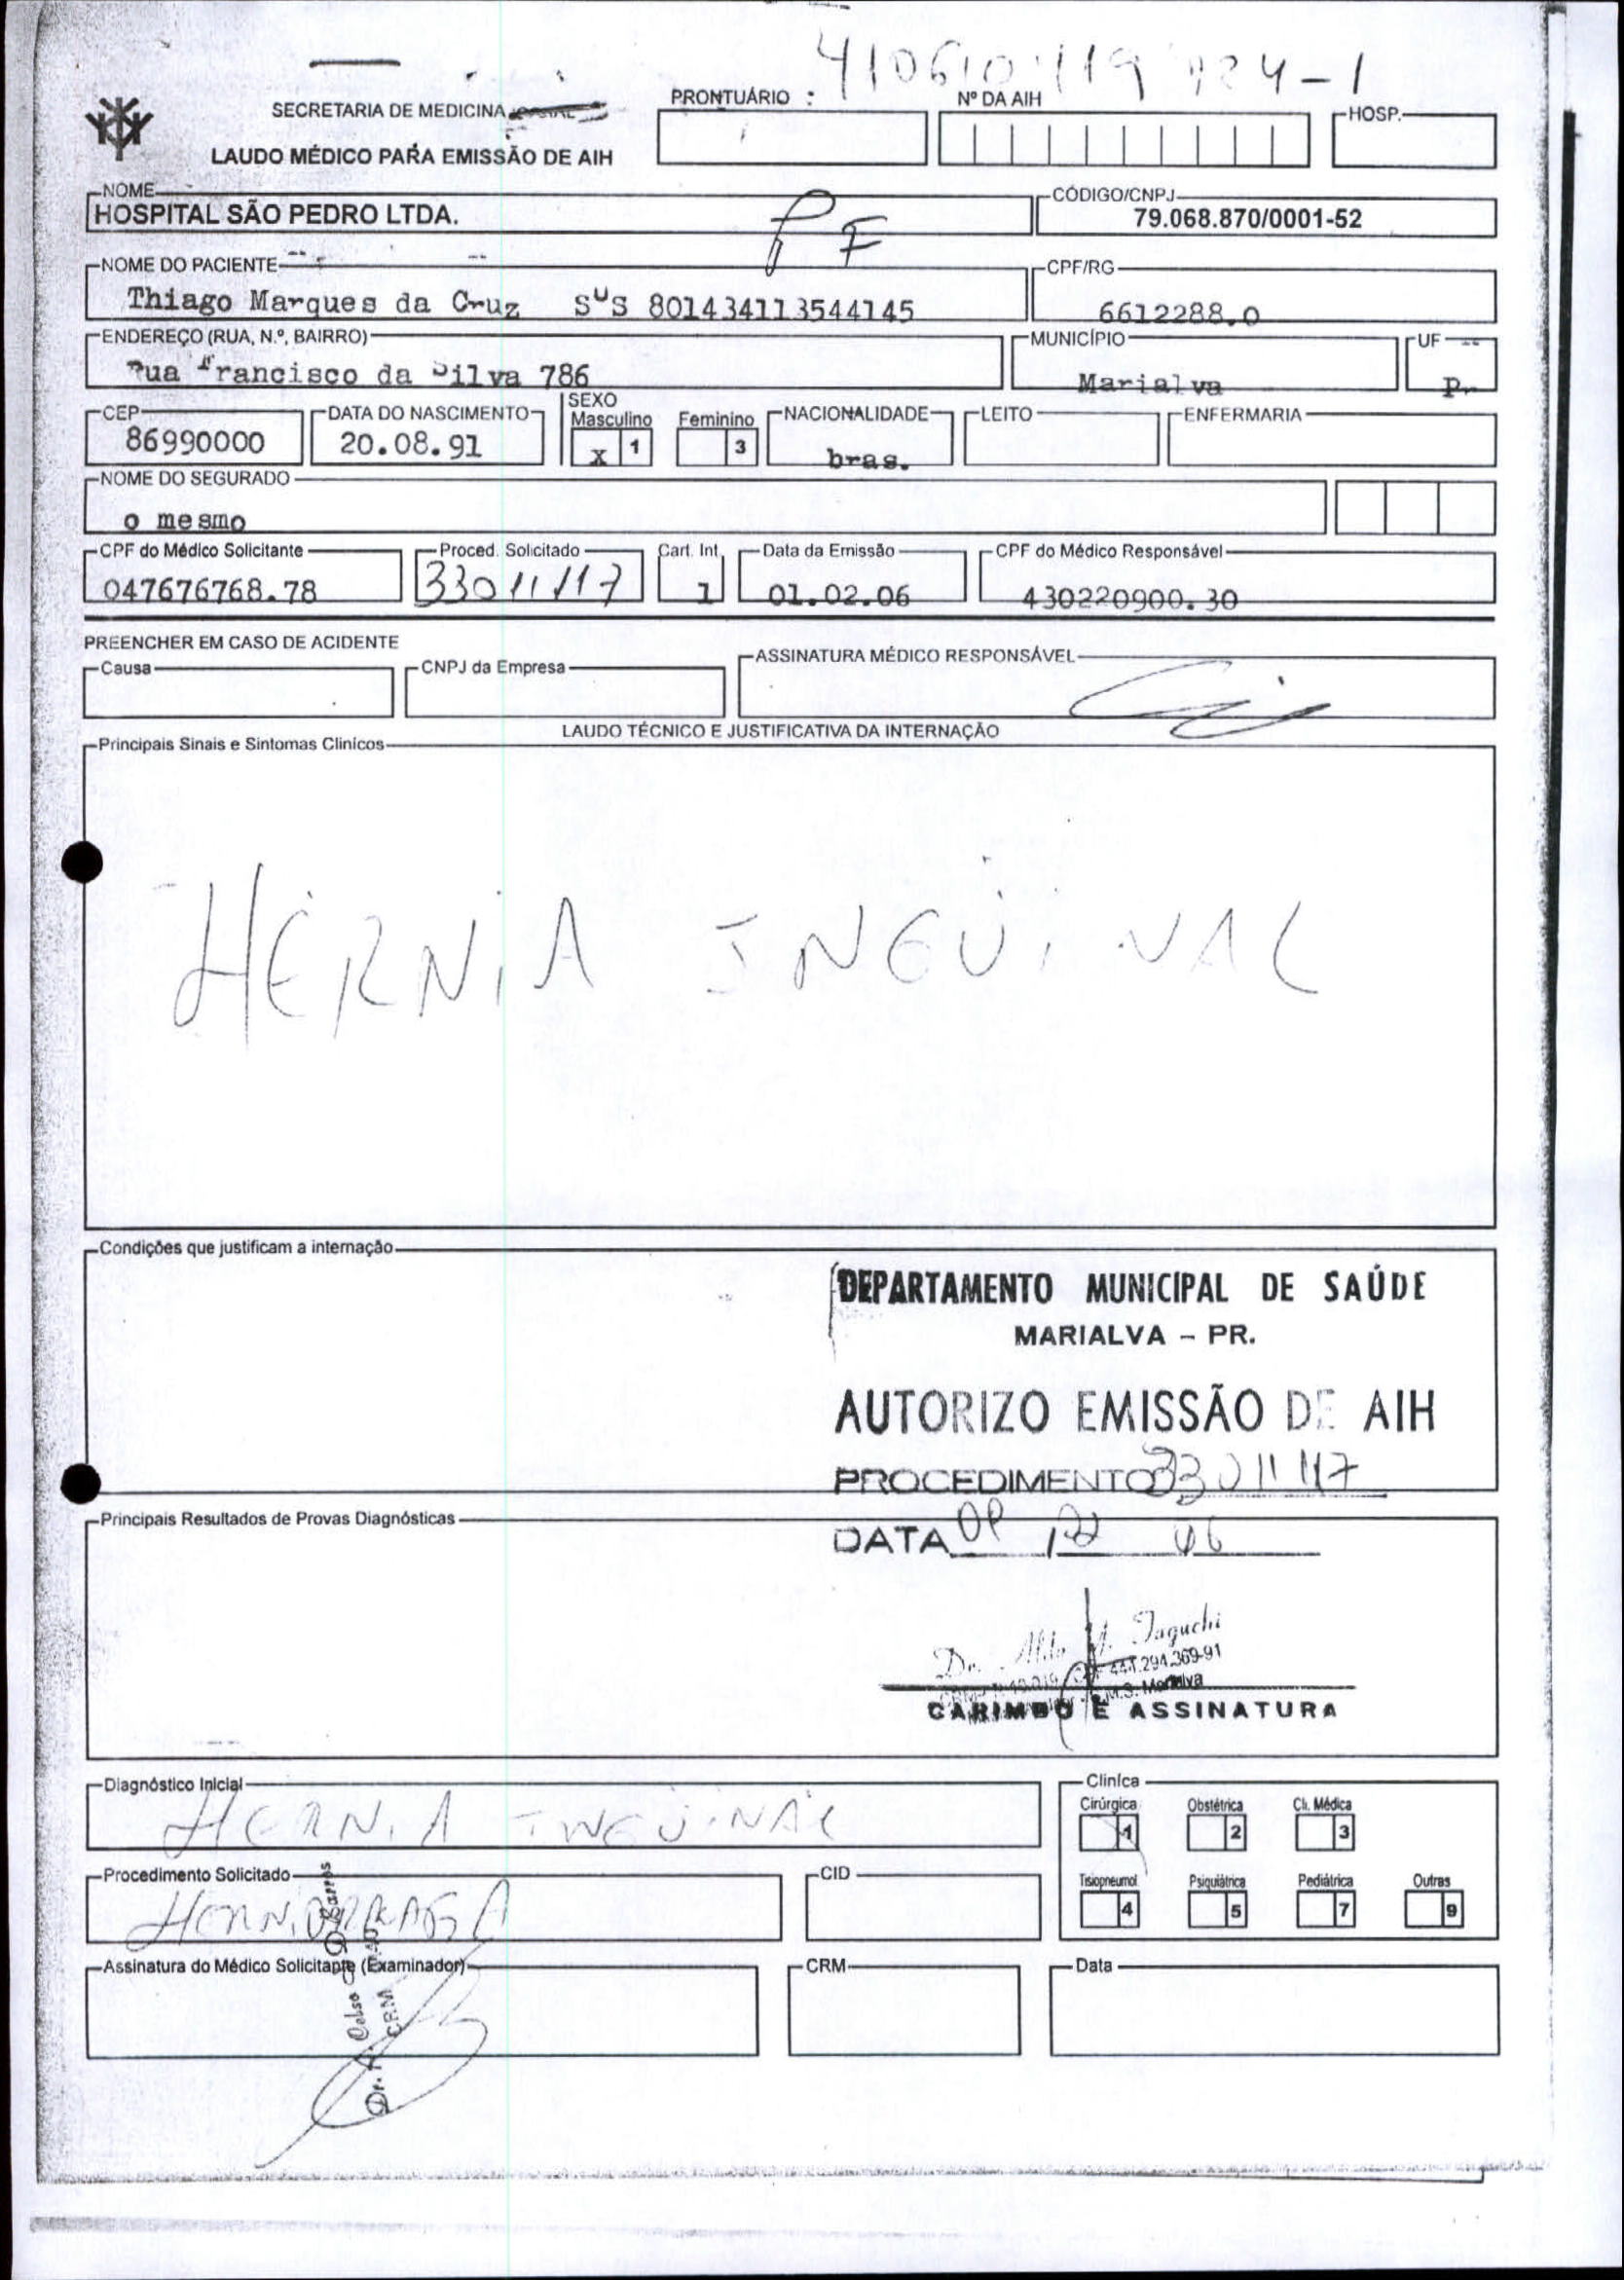 410610119 824-1
SECRETARIA DE MEDICINA
PRONTUÁRIO :
Nº DA AIH
HOSP.
LAUDO MÉDICO PARA EMISSÃO DE AIH
NOME
HOSPITAL SÃO PEDRO LTDA.
CÓDIGO/CNPJ
79.068.870/0001-52
PF
NOME DO PACIENTE
Thiago Marques da Cruz SUS 801434113544145
CPF/RG
6612288.0
ENDEREÇO (RUA, N.º, BAIRRO)
Rua Francisco da Silva 786
MUNICÍPIO
Marialva
UF
Pr
CEP
86990000
DATA DO NASCIMENTO
20.08.91
SEXO
Masculino
x 1
Feminino
3
NACIONALIDADE
bras.
LEITO
ENFERMARIA
NOME DO SEGURADO
o mesmo
CPF do Médico Solicitante
047676768.78
Proced. Solicitado
33011117
Cart. Int.
1
Data da Emissão
01.02.06
CPF do Médico Responsável
430220900.30
PREENCHER EM CASO DE ACIDENTE
Causa
CNPJ da Empresa
ASSINATURA MÉDICO RESPONSÁVEL
LAUDO TÉCNICO E JUSTIFICATIVA DA INTERNAÇÃO
Principais Sinais e Sintomas Clínicos
HÉRNIA INGÜINAL
Condições que justificam a internação
DEPARTAMENTO MUNICIPAL DE SAÚDE
MARIALVA - PR.
AUTORIZO EMISSÃO DE AIH
PROCEDIMENTO 33011117
Principais Resultados de Provas Diagnósticas
DATA 06
Dr. Aldo Y. Taguchi
444.294.369-91
M.S. Marialva
CARIMBO E ASSINATURA
Diagnóstico Inicial
HERNIA INGÜINAL
Clínica
Cirúrgica
1
Obstétrica
2
Cli. Médica
3
Procedimento Solicitado
HERNIORRAFIA
CID
Tisiopneumol
4
Psiquiátrica
5
Pediátrica
7
Outras
9
Assinatura do Médico Solicitante (Examinador)
CRM
Data
Dr. A. Celso Barros
CRM